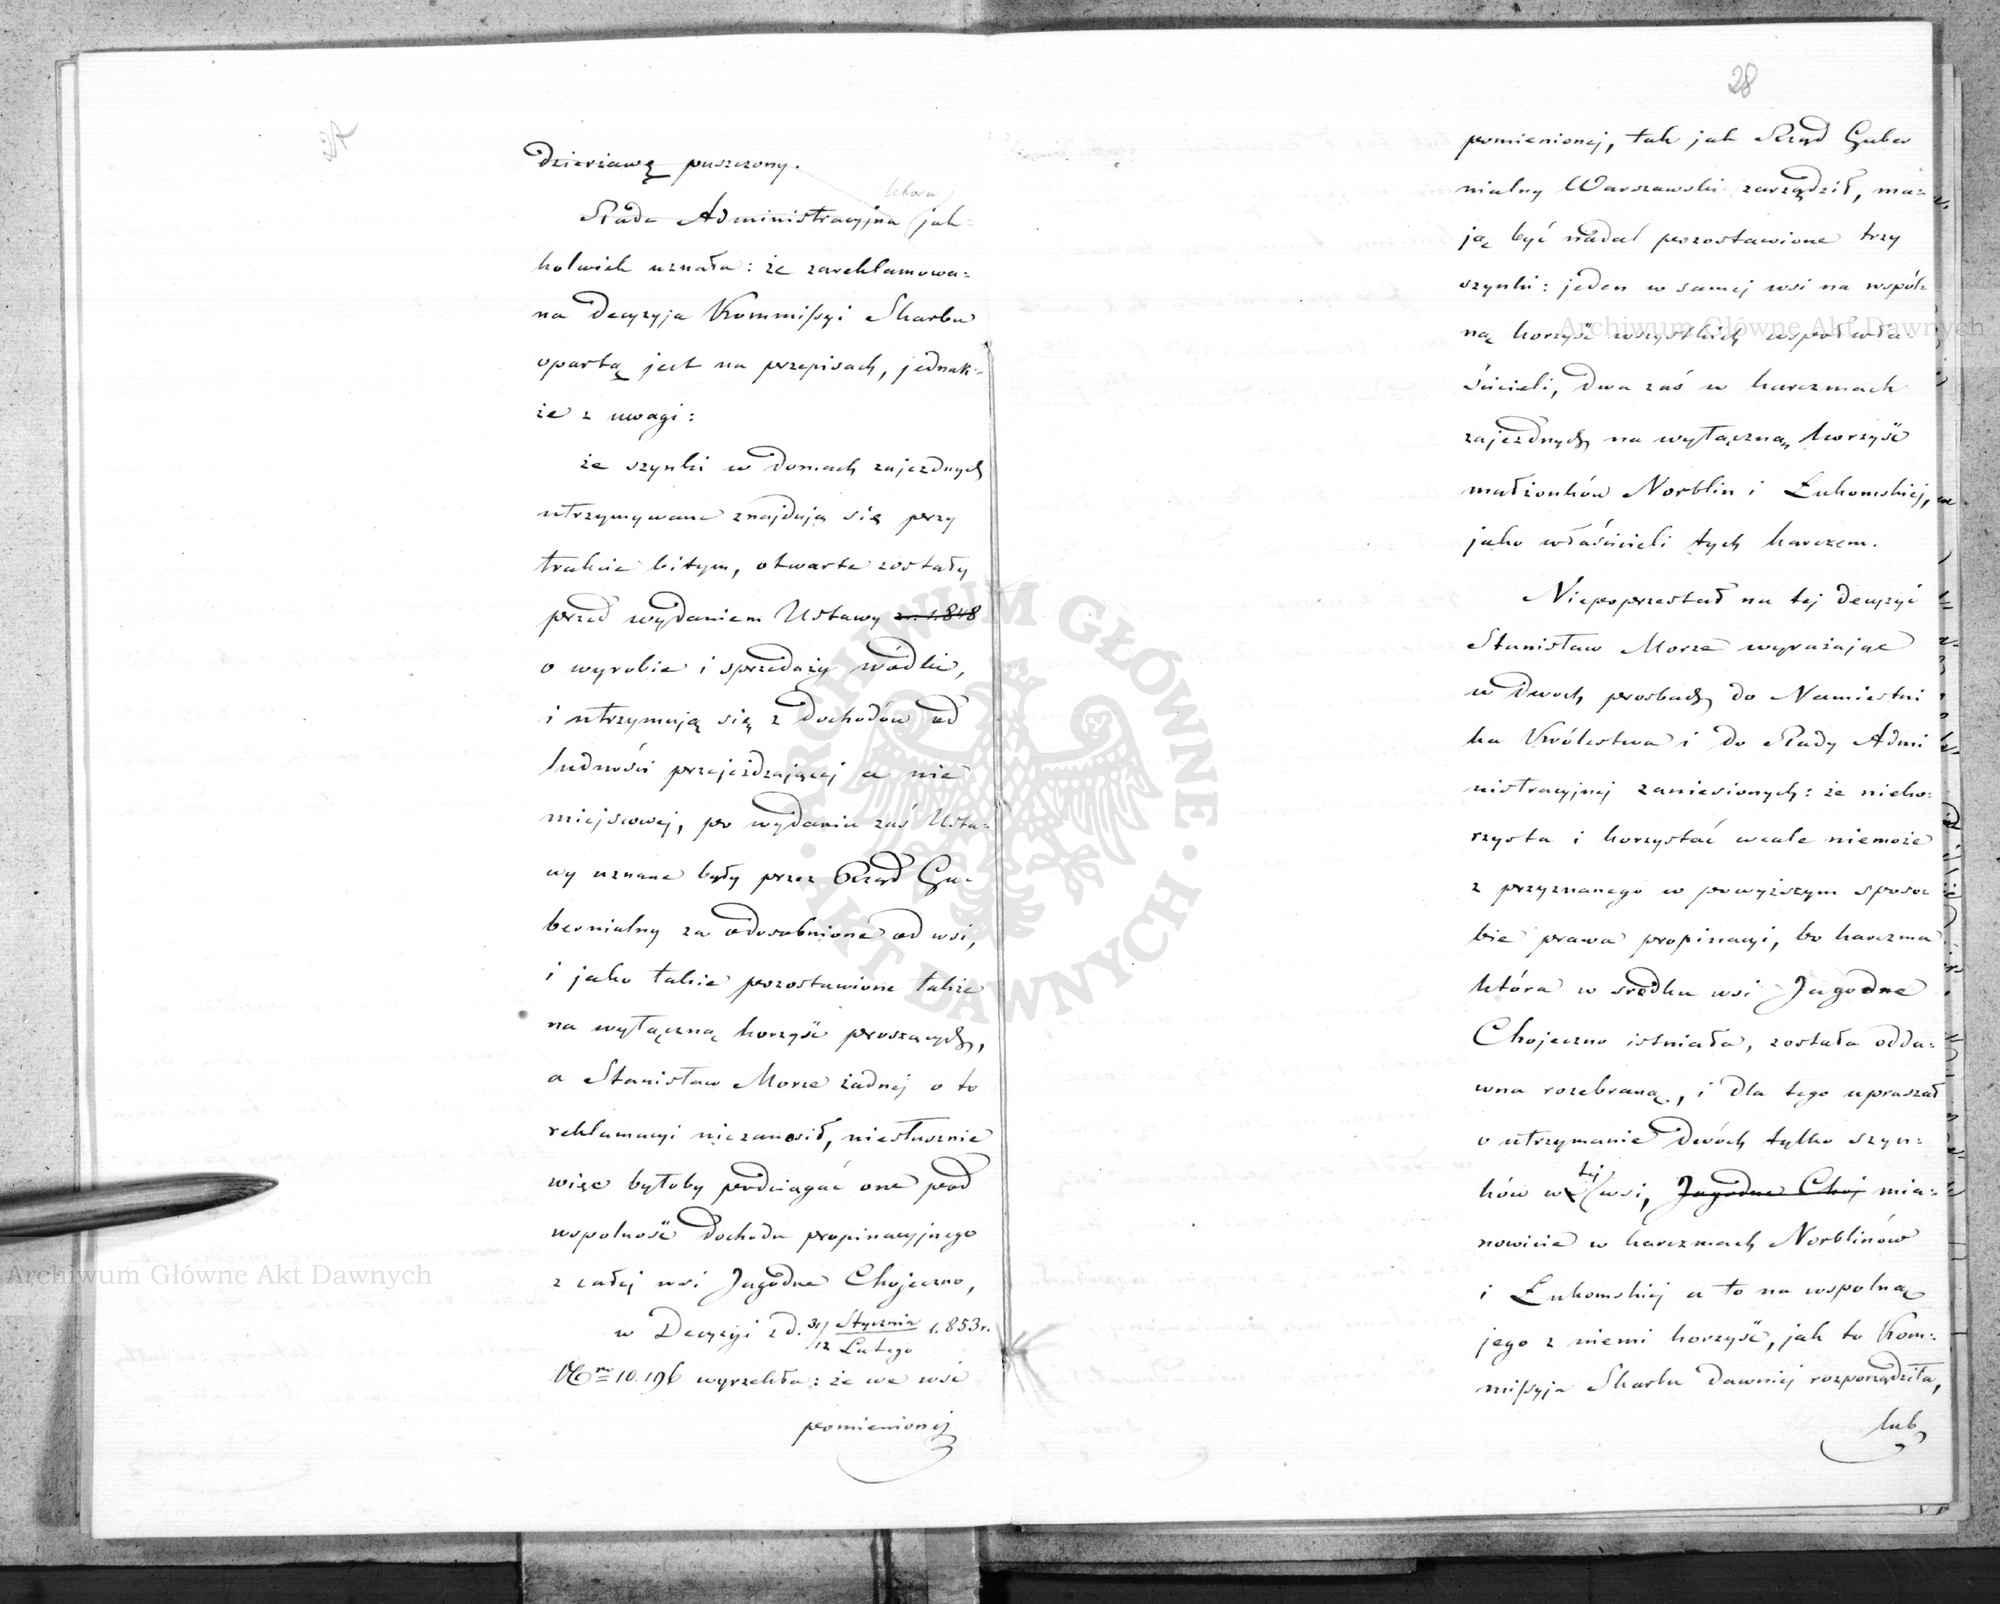 27
dzierżawę puszczony.
która
Rada Administracyjna jak-
kolwiek uznała: że zareklamowa-
na decyzyja Kommissyi Skarbu
opartą jest na przepisach, jednak-
że z uwagi:
że szynki w domach zajezdnych
utrzymywane znajdują się przy
trakcie bitym, otwarte zostały
przed wydaniem Ustawy z r. 1848
o wyrobie i sprzedaży wódki,
i utrzymują się z dochodów od
ludności przejeżdzającej a nie
miejscowej, po wydaniu zaś Usta-
wy uznane były przez Rząd Gu-
bernialny za odosobnione od wsi,
i jako takie pozostawione także
na wyłączną korzyść proszących,
a Stanisław Morze żadnej o to
reklamacyi niezanosił, niesłusznie
więc byłoby podciągać one pod
wspolność dochodu propinacyjnego
z całej wsi Jagodne Chojeczno,
w Decyzyi z d. 31/12 Stycznia/Lutego 1.853 r.
No 10.196 wyrzekła: że we wsi
pomienionej
28
pomienionej, tak jak Rząd Guber
nialny Warszawski zarządził, ma-
ją być nadal pozostawione trzy
szynki: jeden w samej wsi na wspól-
ną korzyść wszystkich wspołwła-
ścicieli, dwa zaś w karczmach
zajezdnych na wyłączną korzyść
małżonków Norblin i Łukomskiej,
jako właścicieli tych karczem.
Niepoprzestał na tej decyzyi
Stanisław Morze wyrażając
w dwoch prosbach do Namiestni
ka Królestwa i do Rady Admi
nistracyjnej zaniesionych: że nieko-
rzysta i korzystać wcale niemoże
z przyznanego w powyższym sposo-
bie prawa propinacyi, bo karczma
która w srodku wsi Jagodne
Chojeczno istniała, została odda-
wna rozebraną, i dla tego upraszał
o utrzymanie dwóch tylko szyn-
tej
ków we wsi, Jagodne Choj mia-
nowicie w karczmach Norblinów
i Łukomskiej a to na wspolną
jego z niemi korzyść, jak to Kom-
missyja Skarbu dawniej rozporządziła,
lub
Archiwum Główne Akt Dawnych
Archiwum Główne Akt Dawnych
ARCHIWUM GŁÓWNE · AKT DAWNYCH ·